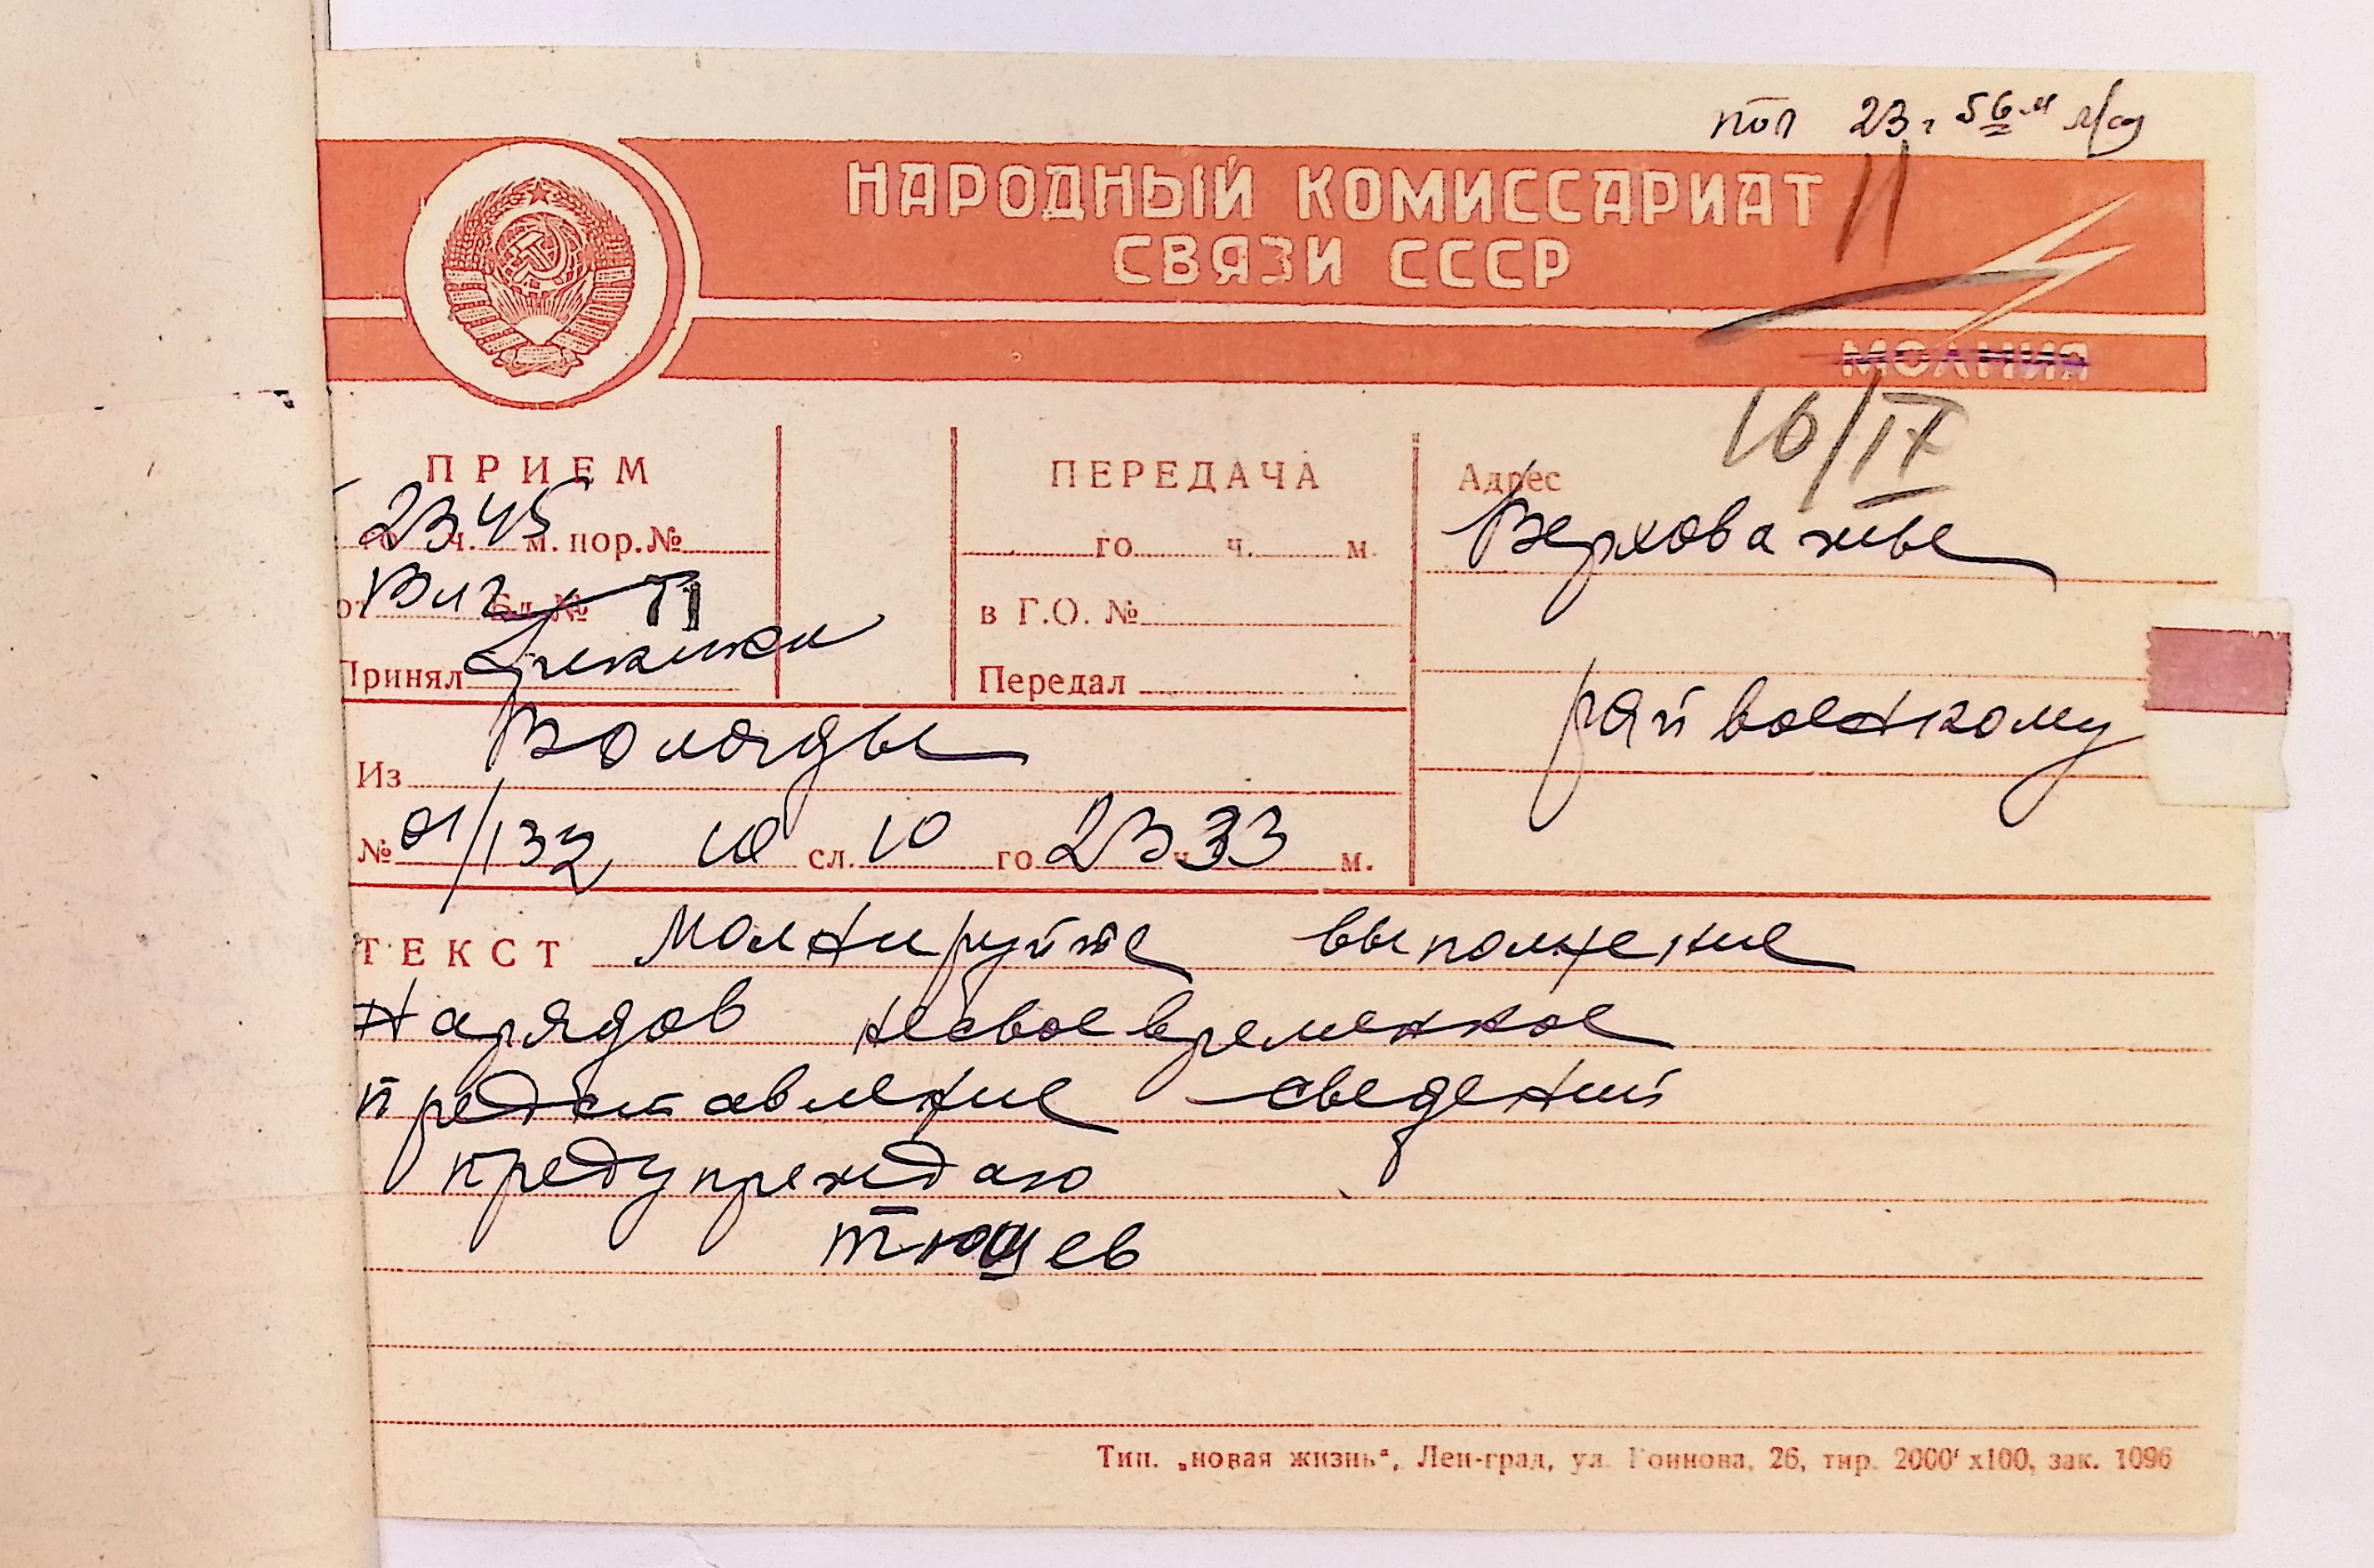 пол 23 г 56 м
НАРОДНЫЙ КОМИССАРИАТ
СВЯЗИ СССР
11
МОЛНИЯ
10/IX
ПРИЕМ
2345
го ч. м. пор.№
от Влг Бл. № 71
Принял
ПЕРЕДАЧА
го ч. м.
в Г.О. №
Передал
Адрес
Верховажье
райвоенкому
Из Вологды
№ 01/132 10 сл. 10 го 23 ч 33 м.
ТЕКСТ Молнируйте выполнение
нарядов несвоевременное
представление сведений
предупреждаю
Тюшев
Тип. „новая жизнь“, Лен-град, ул. Воинова, 26, тир. 2000 х100, зак. 1096